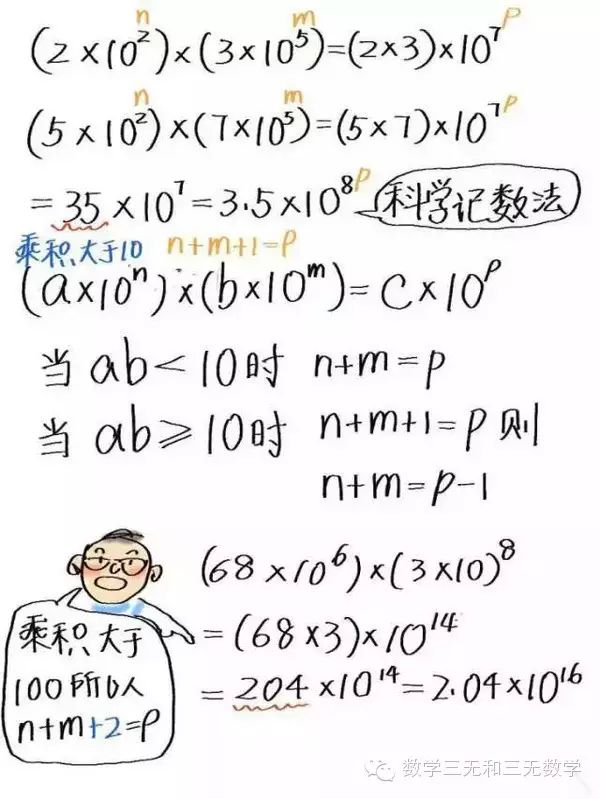 n m P
(2×10²)×(3×10⁵)=(2×3)×10⁷
n m
(5×10²)×(7×10⁵)=(5×7)×10⁷ᴾ
=35×10⁷=3.5×10⁸ᴾ 科学记数法
乘积大于10 n+m+1=P
(a×10ⁿ)×(b×10ᵐ)=C×10ᴾ
当ab<10时 n+m=P
当ab≥10时 n+m+1=P则
n+m=P-1
(68×10⁶)×(3×10)⁸
=(68×3)×10¹⁴
=204×10¹⁴=2.04×10¹⁶
乘积大于
100所以人
n+m+2=P
数学三无和三无数学